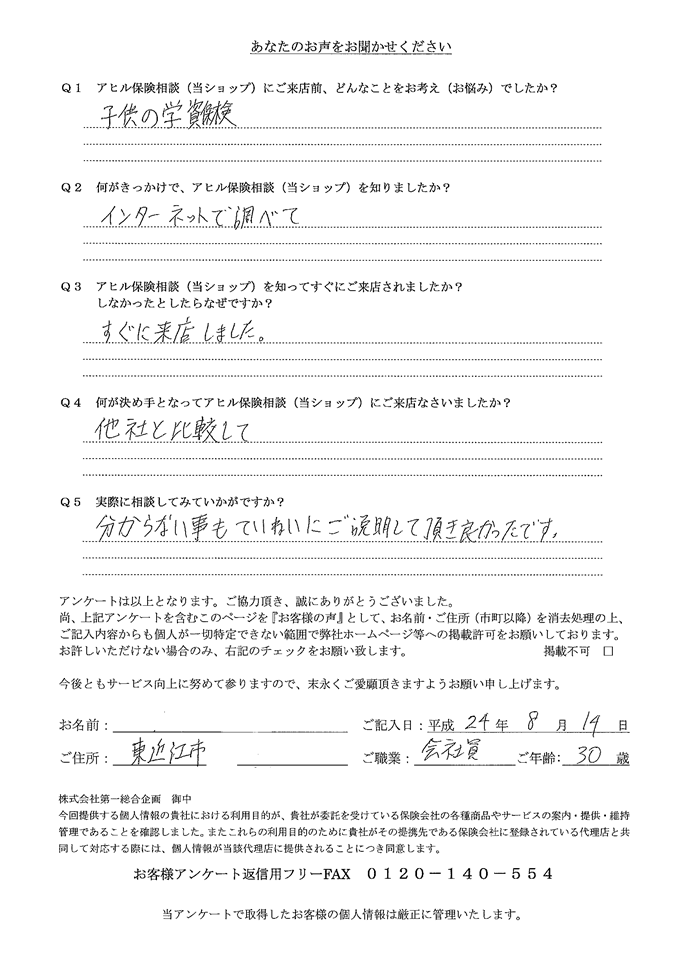 あなたのお声をお聞かせください
Q1 アヒル保険相談（当ショップ）にご来店前、どんなことをお考え（お悩み）でしたか？
子供の学資保検
Q2 何がきっかけで、アヒル保険相談（当ショップ）を知りましたか？
インターネットで調べて
Q3 アヒル保険相談（当ショップ）を知ってすぐにご来店されましたか？
しなかったとしたらなぜですか？
すぐに来店しました。
Q4 何が決め手となってアヒル保険相談（当ショップ）にご来店なさいましたか？
他社と比較して
Q5 実際に相談してみていかがですか？
分からない事もていねいにご説明して頂き良かったです。
アンケートは以上となります。ご協力頂き、誠にありがとうございました。
尚、上記アンケートを含むこのページを『お客様の声』として、お名前・ご住所（市町以降）を消去処理の上、
ご記入内容からも個人が一切特定できない範囲で弊社ホームページ等への掲載許可をお願いしております。
お許しいただけない場合のみ、右記のチェックをお願い致します。 掲載不可 □
今後ともサービス向上に努めて参りますので、末永くご愛顧頂きますようお願い申し上げます。
お名前： ご記入日：平成 24 年 8 月 19 日
ご住所： 東近江市 ご職業： 会社員 ご年齢： 30 歳
株式会社第一総合企画 御中
今回提供する個人情報の貴社における利用目的が、貴社が委託を受けている保険会社の各種商品やサービスの案内・提供・維持
管理であることを確認しました。またこれらの利用目的のために貴社がその提携先である保険会社に登録されている代理店と共
同して対応する際には、個人情報が当該代理店に提供されることにつき同意します。
お客様アンケート返信用フリーFAX 0120－140－554
当アンケートで取得したお客様の個人情報は厳正に管理いたします。